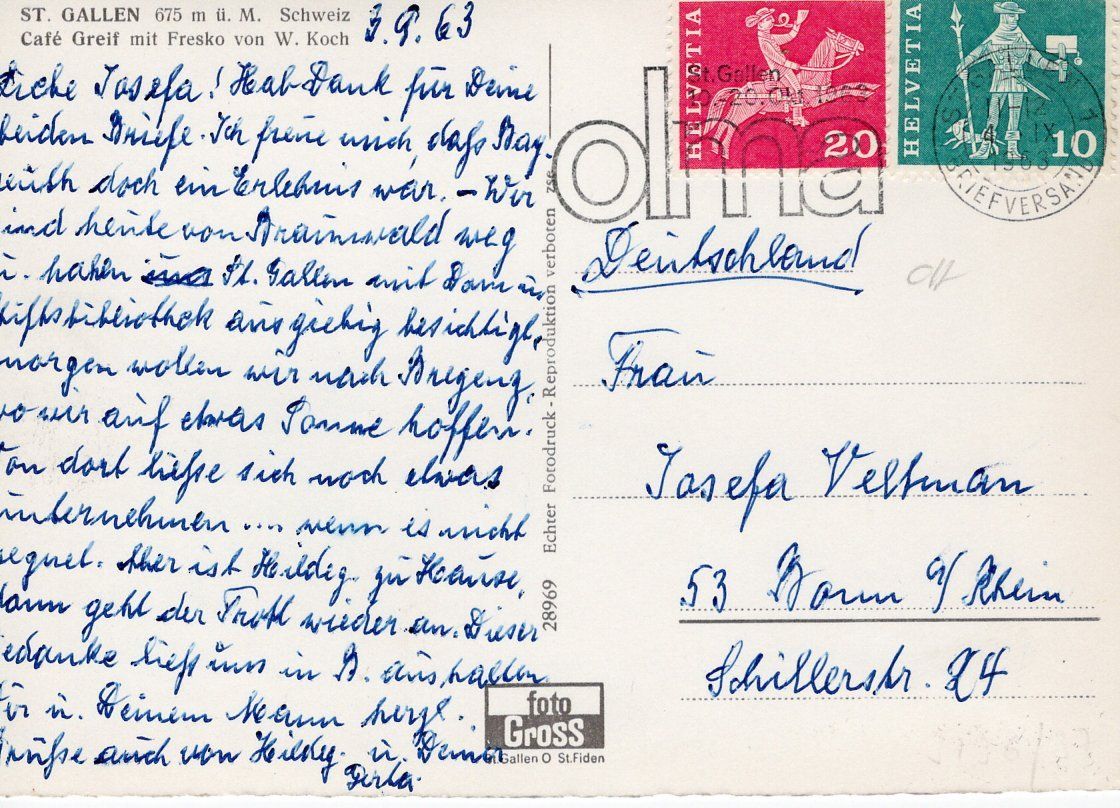 ST. GALLEN 675 m ü. M. Schweiz
Café Greif mit Fresko von W. Koch
3.9.63
Liebe Josefa! Hab Dank für Deine
beiden Briefe. Ich freue mich, daß Bay-
reuth doch ein Erlebnis war. – Wir
sind heute von Braunwald weg
u. haben St. Gallen mit Dom u.
Stiftsbibliothek ausgiebig besichtigt,
morgen wollen wir nach Bregenz,
wo wir auf etwas Sonne hoffen.
Von dort ließe sich noch etwas
unternehmen .... wenn es nicht
regnet. Aber ist Hildeg. zu Hause,
dann geht der Trott wieder an. Dieser
Gedanke ließ uns in B. aushalten.
Dir u. Deinem Mann herzl.
Grüße auch von Hildeg. u. Deiner
Gerta
28969 Echter Fotodruck - Reproduktion verboten zse
foto
Gross
St.Gallen O St.Fiden
HELVETIA 20
HELVETIA 10
St.Gallen
olma
BRIEFVERSAND
Deutschland
Frau
Josefa Veltman
53 Bonn a/Rhein
Schillerstr. 24